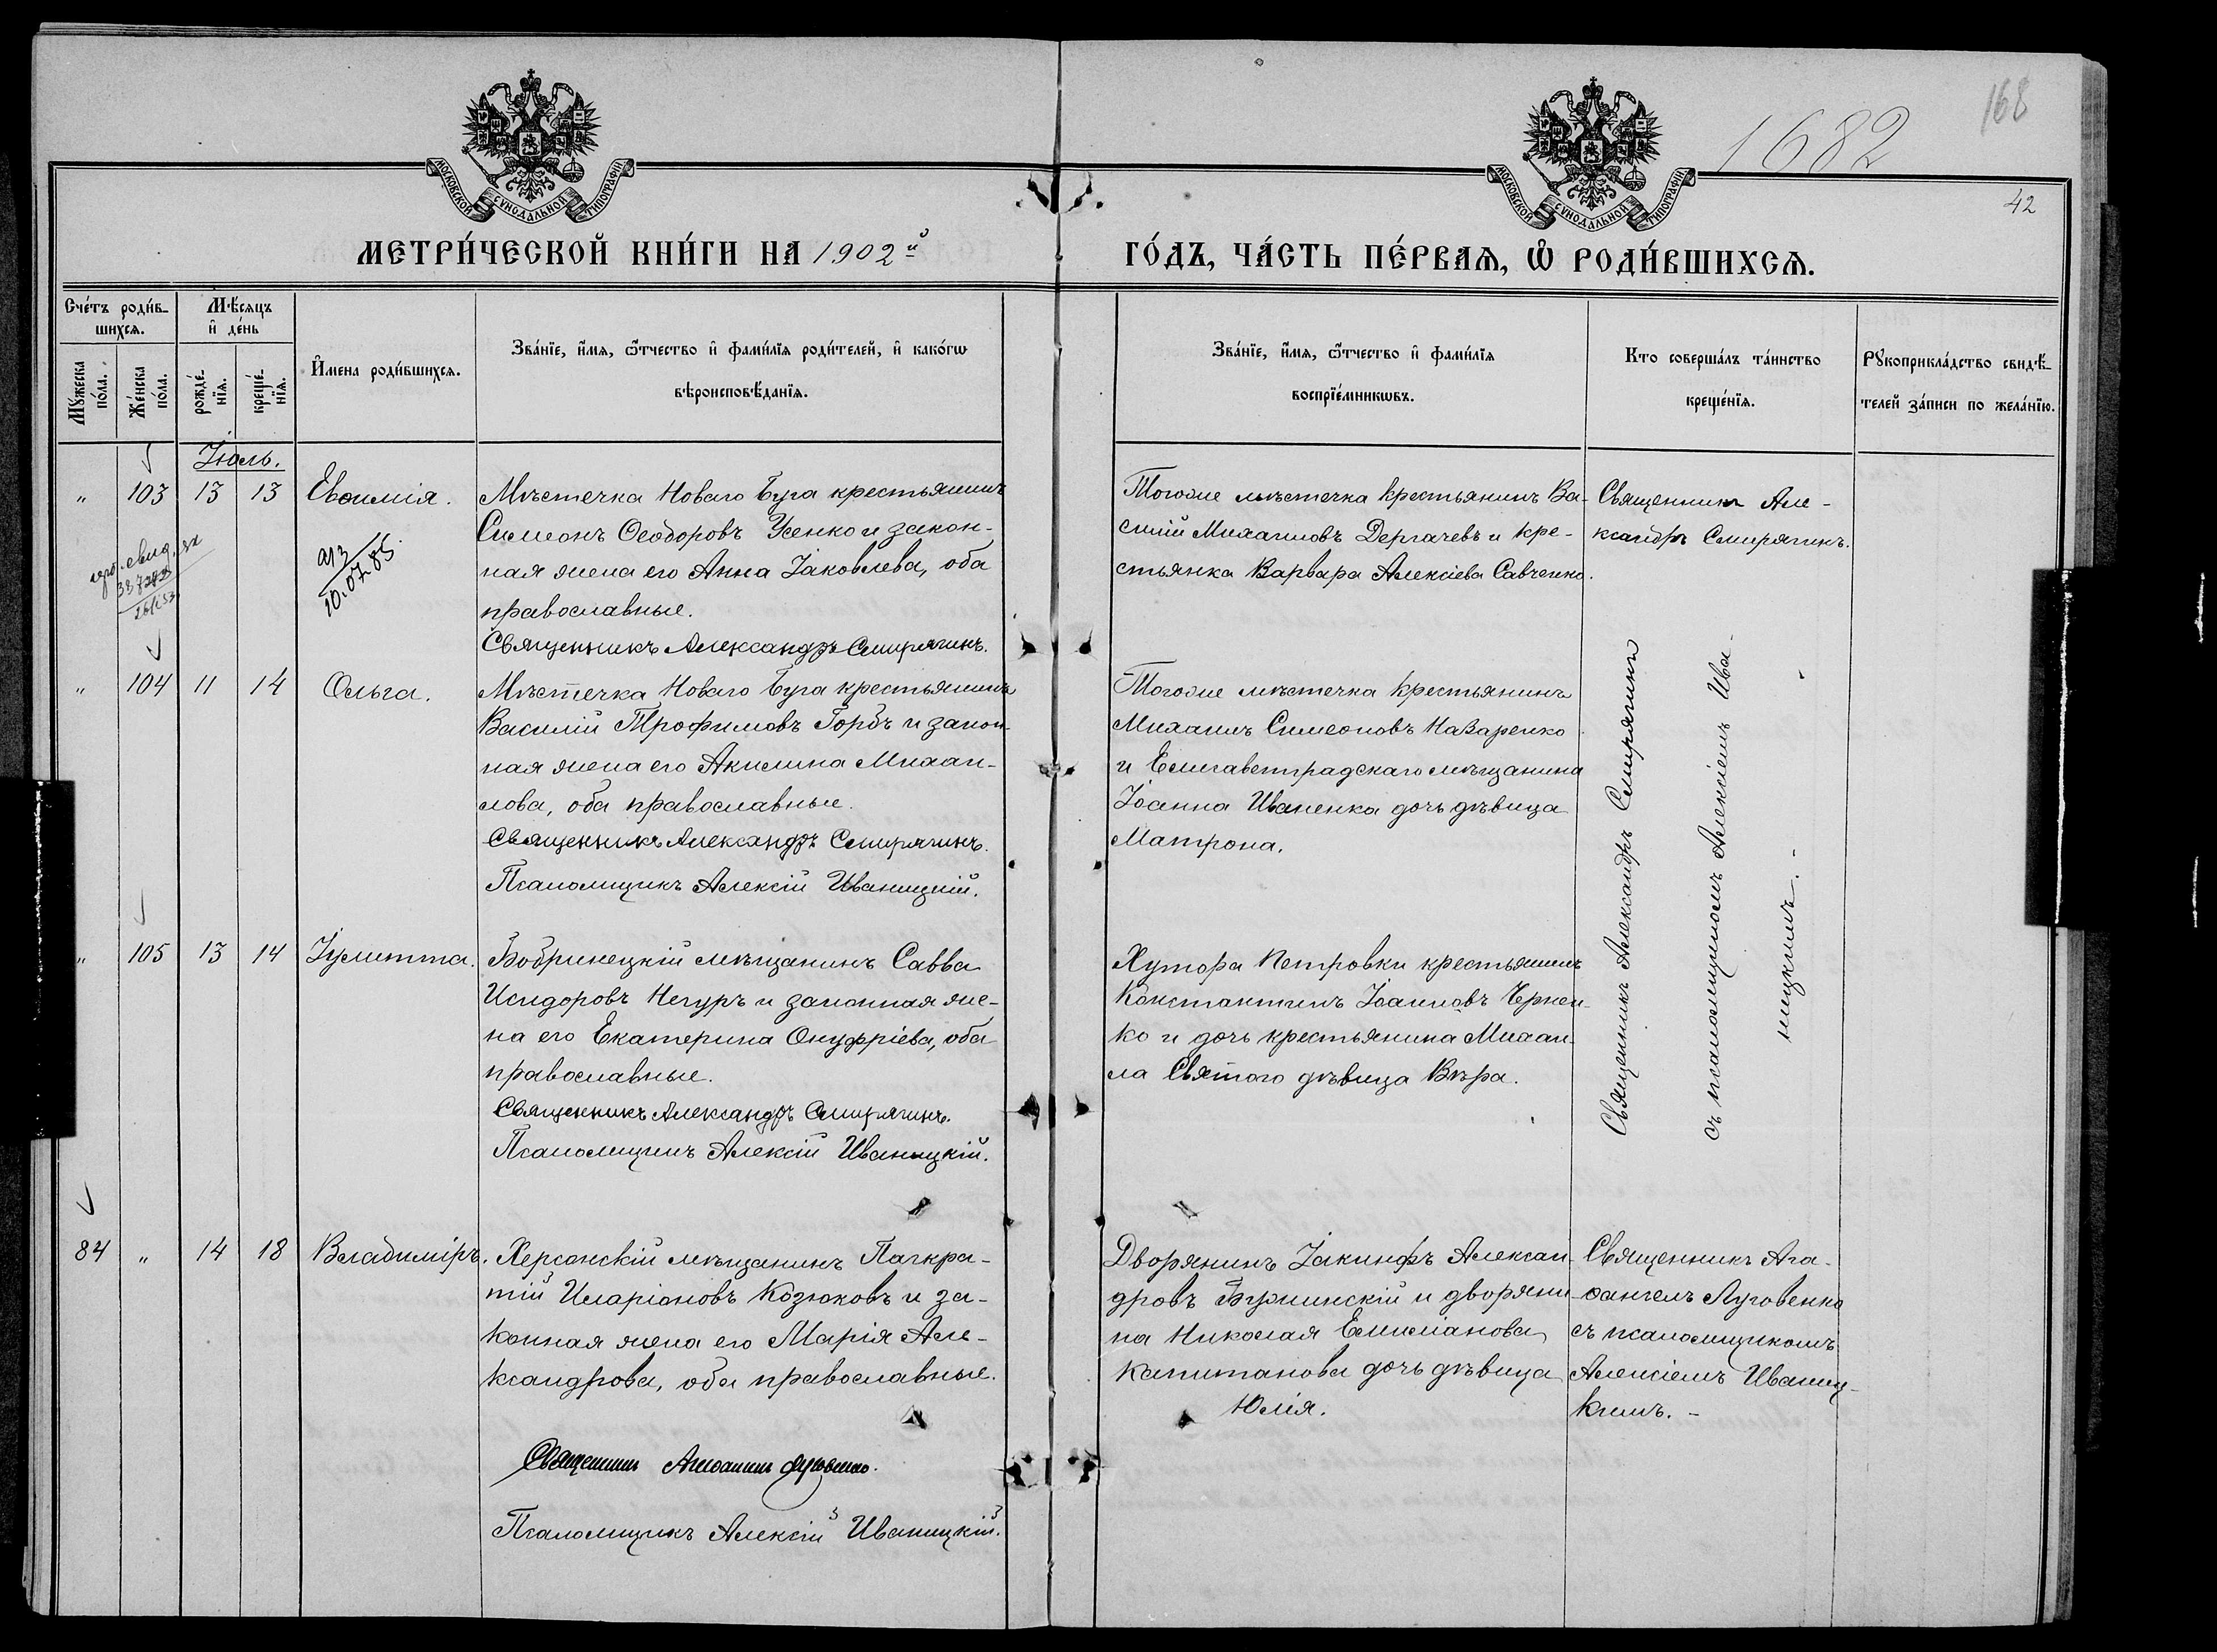 1682
168
42
МОСКОВСКОЙ СУНОДАЛЬНОЙ ТИПОГРАФІИ
МОСКОВСКОЙ СУНОДАЛЬНОЙ ТИПОГРАФІИ
МЕТРИ́ЧЕСКОЙ КНИ́ГИ НА 1902й
ГО́ДЪ, ЧА́СТЬ ПЕ́РВАѦ, Ѡ РОДИ́ВШИХСѦ.
Счетъ родив-
шихсѧ.
Мѣсѧцъ
и день
Мꙋжеска пола.
Женска пола.
рожде-
нїѧ.
креще-
нїѧ.
Имена родившихсѧ.
Званїе, имѧ, ѿчество и фамилїѧ родителей, и какогѡ
вѣроисповѣданїѧ.
Званїе, имѧ, ѿчество и фамилїѧ
воспрїемникѡвъ.
Кто совершалъ таинство
крещенїѧ.
Рꙋкоприкладство свидѣ-
телей записи по желанїю.
Іюль.
„ 103 13 13 Евѳимія.
Мѣстечка Новаго Буга крестьянинъ
Симеонъ Ѳеодоровъ Усенко и закон-
ная жена его Анна Іаковлева, оба
православные.
Священникъ Александръ Смирягинъ.
Тогоже мѣстечка крестьянинъ Ва-
силій Михаиловъ Дергачевъ и кре-
стьянка Варвара Алексіева Савченко.
Священникъ Але-
ксандръ Смирягинъ.
10.07.85
„ 104 11 14 Ольга.
Мѣстечка Новаго Буга крестьянинъ
Василій Трофимовъ Горбъ и закон-
ная жена его Акилина Михаи-
лова, оба православные.
Священникъ Александръ Смирягинъ.
Псаломщикъ Алексій Иваницкій.
Тогоже мѣстечка крестьянинъ
Михаилъ Симеоновъ Назаренко
и Елисаветградскаго мѣщанина
Іоанна Иваненка дочь дѣвица
Матрона.
Священникъ Александръ Смирягинъ
съ псаломщикомъ Алексіемъ Ива-
ницкимъ.-
„ 105 13 14 Іулитта.
Бобринецкій мѣщанинъ Савва
Исидоровъ Негуръ и законная же-
на его Екатерина Онуфріева, оба
православные.
Священникъ Александръ Смирягинъ.
Псаломщикъ Алексій Иваницкій.
Хутора Петровки крестьянинъ
Константинъ Іоанновъ Чернен-
ко и дочь крестьянина Михаи-
ла Святого дѣвица Вѣра.
84 „ 14 18 Владиміръ.
Херсонскій мѣщанинъ Панкра-
тій Иларіоновъ Козюковъ и за-
конная жена его Марія Але-
ксандрова, оба православные.
Священникъ Агаѳангелъ Луговенко.
Псаломщикъ Алексій Иваницкій.
Дворянинъ Іакинфъ Алексан-
дровъ и дворяни-
на Николая Емиліанова
Капитанова дочь дѣвица
Юлія.
Священникъ Ага-
ѳангелъ Луговенко
съ псаломщикомъ
Алексіемъ Иваниц-
кимъ.-